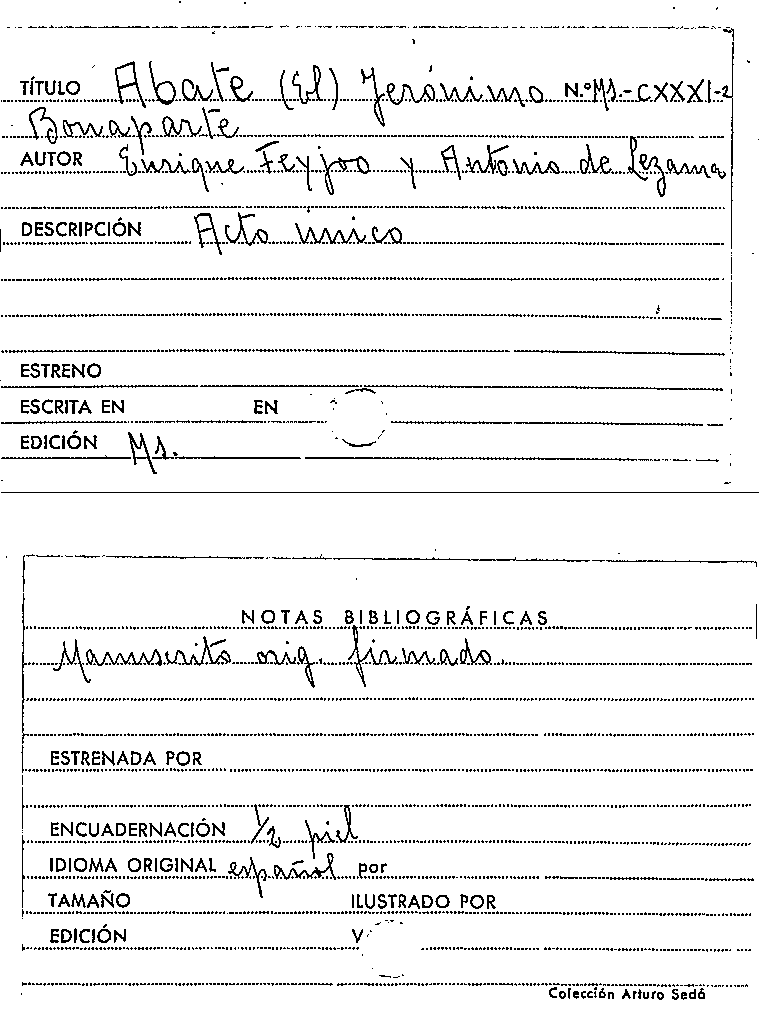 TÍTULO Abate (El) Jerónimo N.º Ms.-CXXXI-2
Bonaparte
AUTOR Enrique Feyjoo y Antonio de Lezama
DESCRIPCIÓN Acto único
ESTRENO
ESCRITA EN EN
EDICIÓN Ms.
NOTAS BIBLIOGRÁFICAS
Manuscrito orig. firmado.
ESTRENADA POR
ENCUADERNACIÓN 1/2 piel
IDIOMA ORIGINAL español por
TAMAÑO ILUSTRADO POR
EDICIÓN V
Colección Arturo Sedó